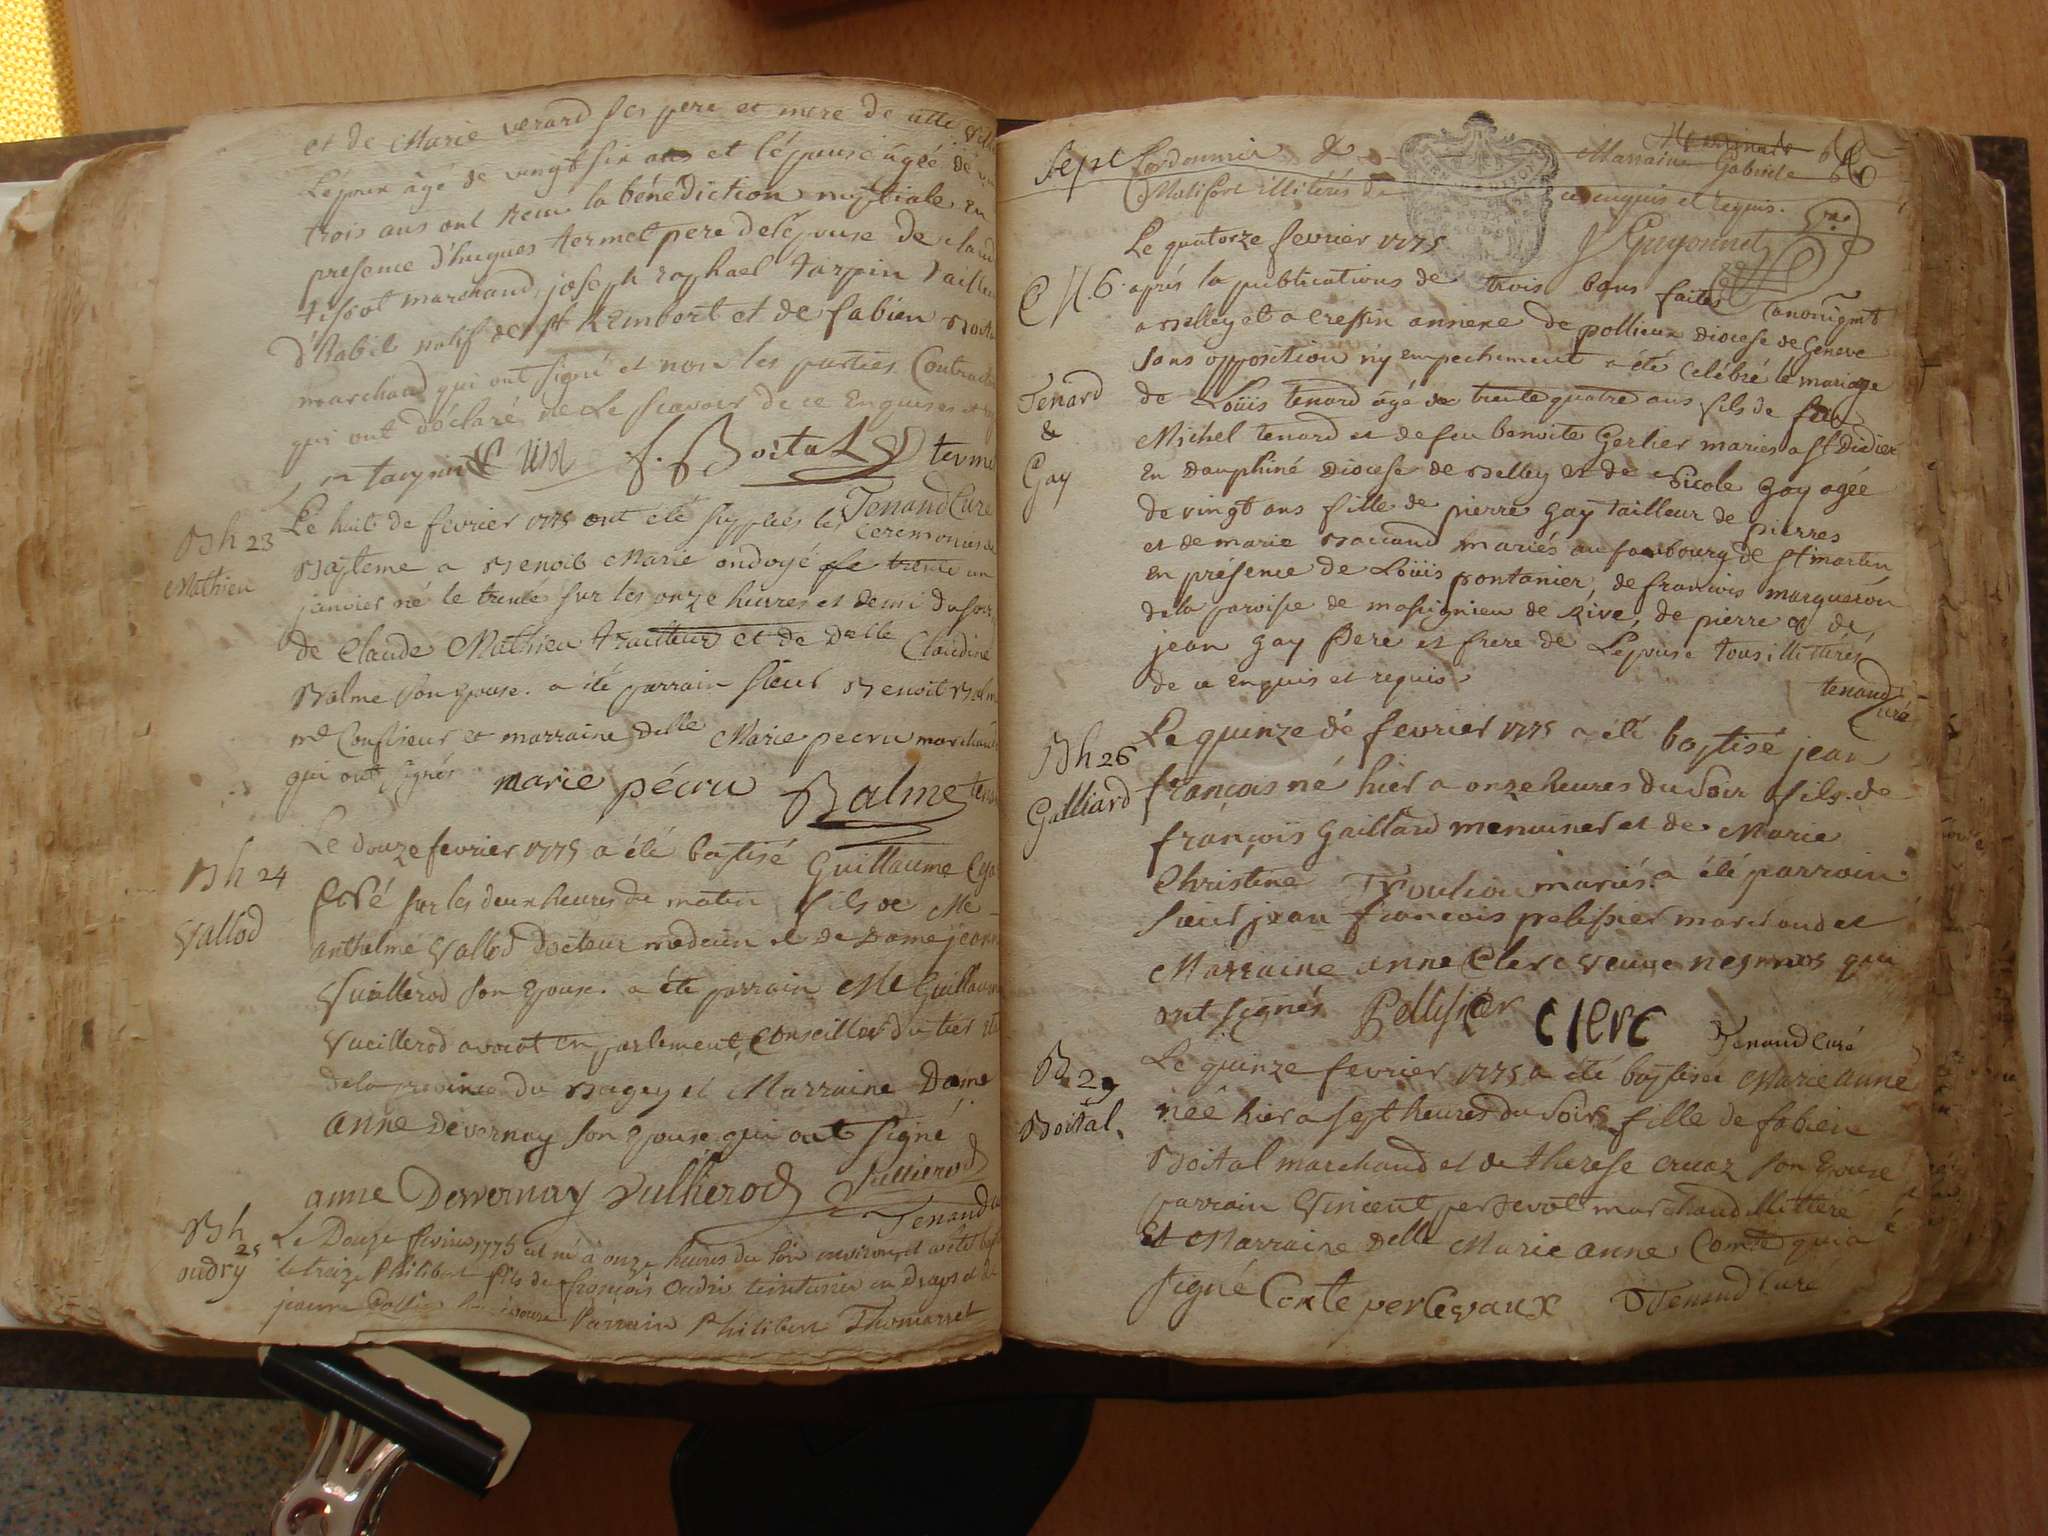 et de Marie verard ses pere et mere de cette ville
L'époux âgé de vingt six ans et l'épouse âgée de
trois ans ont recu la bénédiction nuptiale en
presence d'hugues termet pere de lépouse de claud
tissot marchand, joseph raphael tarpin tailleur
d'habit natif de st Rembert et de fabien Boital
marchand qui ont signé et non les parties Contract
qui ont déclaré de Le scavoir de ce Enquises et
f. Boital terme
Tenand Curé
Bh 23
Mathieu
Le huit de fevrier 1775 ont été supplées les ceremonies de
Bapteme a Benoit Marie ondoyé le trente un
janvier né le trente sur les onze heures et demi du soir
de Claude Mathieu traitteur et de Delle Claudine
Balme son Epouse. a été parrain sieur Benoit Balme
md Confiseur et marraine delle Marie pecru marchand
qui ont signés marie pécru Balme
Bh 24
Vallod
Le douze fevrier 1775 a été baptisé Guillaume
né sur les deux heures du matin fils de Me
anthelme Vallod Docteur medecin et de Dame jeanne
Vuillerod son Epouse. a été parrain Me Guillaume
Vueillerod avocat en parlement, Conseiller du tier
de la province du Bugey et Marraine Dame
anne Devernay son Epouse qui ont signé
anne Devernay Vullierod Vullierod
Tenand
Bh 25
oudry
Le Douze fevrier 1775 est né à onze heures du soir environ, et a été
le treize Philibert fils de françois Oudri teinturier en Draps et de
jeanne son épouse Parrain Philibert Thomasset
Sept Cordonnier & Marraine Gabriele
Matifort illitérés de ce enquis et requis.
J Guyonnet
Le quatorze fevrier 1775
C N. 6. après la publications de trois bans faites Canoniqmt
a Belley et a Cressin annexe de pollieux Diocese de Geneve
sans opposition ny empechement a été celébré le mariage
Tenard
&
Gay
de Loüis tenard âgé de trente quatre ans fils de feu
Michel tenard et de feu benoite Gerlier mariés a st Didier
En Dauphiné Diocese de Belley et de Nicole Gay agée
de vingt ans fille de pierre Gay tailleur de pierres
et de marie mariés au faubourg de st martin
en présence de Loüis pontanier, de francois marguerón
de la paroisse de massignieu de Rive, de pierre & de
jean Gay Pere et frere de Lepouse tous illitérés
de ce enquis et requis
tenand
curé
Bh 26
Galliard
Le quinze de fevrier 1775 a été baptisé jean
françois né hier a onze heures du soir fils de
françois Gaillard menuisier et de Marie
Christine mariés. a été parrain
sieur jean françois pelissier marchand et
Marraine anne Clerc veuve qui
ont signés Pellissier Clerc
Tenand Curé
B. 27
Boital.
Le quinze fevrier 1775 a été baptisée Marie anne
néé hier a sept heures du soir fille de fabien
Boital marchand et de therese cruaz son Epouse
parrain Vincent perceval marchand illitteré
Et Marraine delle Marie anne Comte qui a
signé Conte percevaux Tenand Curé